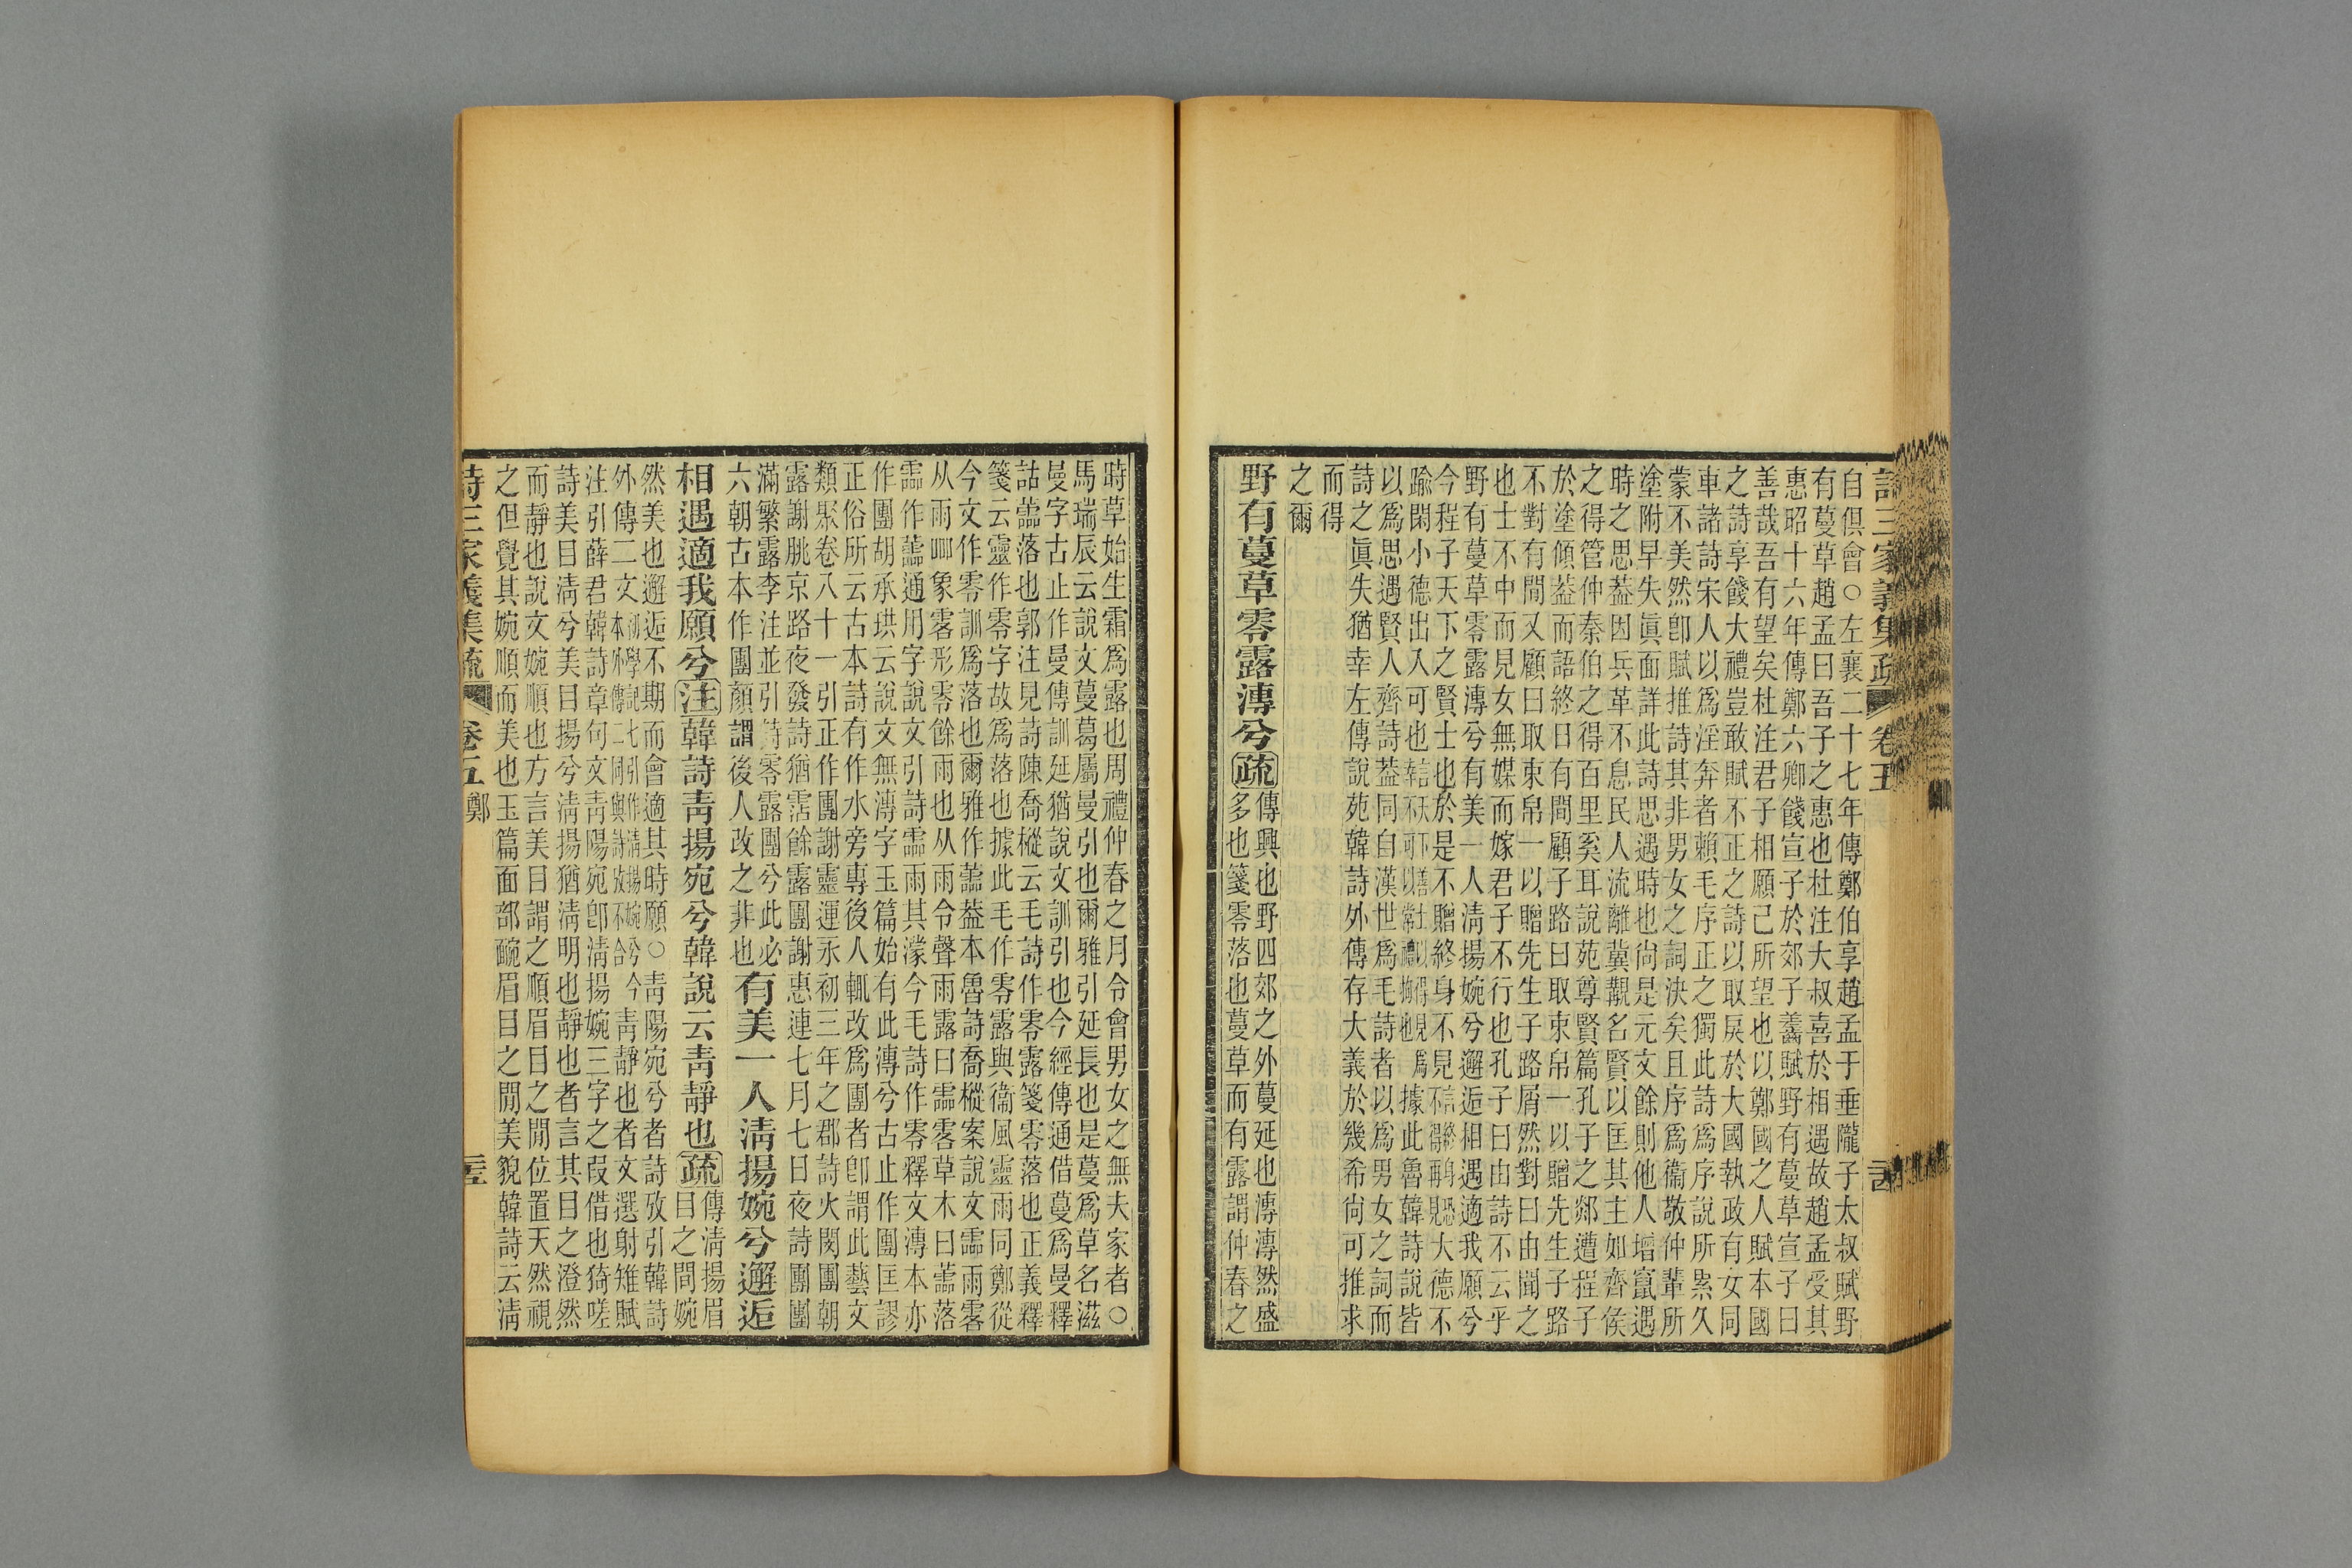 詩三家義集疏 卷五
自俱會○左襄二十七年傳鄭伯享趙孟于垂隴子太叔賦野
有蔓草趙孟曰吾子之惠也杜注大叔喜於相遇故趙孟受其
惠昭十六年傳鄭六卿餞宣子於郊子齹賦野有蔓草宣子曰
善哉吾有望矣杜注君子相願己所望也以鄭國之人賦本國
之詩享餞大禮豈敢賦不正之詩以取戾於大國執政有女同
車諸詩宋人以爲淫奔者賴毛序正之獨此詩爲序說所累久
蒙不美然卽賦推詩其非男女之詞決矣且序爲衞敬仲輩所
塗附早失眞面詳此詩思遇時也尙是元文餘則他人增竄遇
時之思蓋因兵革不息民人流離冀覯名賢以匡其主如齊侯
之得管仲秦伯之得百里奚耳說苑尊賢篇孔子之郯遭程子
於塗傾蓋而語終日有間顧子路曰取束帛一以贈先生子路
不對有間又顧曰取束帛一以贈先生子路屑然對曰由聞之
也士不中而見女無媒而嫁君子不行也孔子曰由詩不云乎
野有蔓草零露漙兮有美一人淸揚婉兮邂逅相遇適我願兮
今程子天下之賢士也於是不贈終身不見大德不
踰閑小德出入可也據此魯韓詩說皆
以爲思遇賢人齊詩蓋同自漢世爲毛詩者以爲男女之詞而
詩之眞失猶幸左傳說苑韓詩外傳存大義於幾希尙可推求
而得
之爾
野有蔓草零露漙兮疏傳興也野四郊之外蔓延也漙漙然盛
多也箋零落也蔓草而有露謂仲春之
時草始生霜爲露也周禮仲春之月令會男女之無夫家者○
馬瑞辰云說文蔓葛屬曼引也爾雅引延長也是蔓爲草名滋
曼字古止作曼傳訓延猶說文訓引也今經傳通借蔓爲曼釋
詁蘦落也郭注見詩陳喬樅云毛詩作零露箋零落也正義釋
箋云靈作零字故爲落也據此毛作零露與衞風靈雨同鄭從
今文作零訓爲落也爾雅作蘦蓋本魯詩喬樅案說文霝雨零
从雨𠱠象䨩形零餘雨也从雨令聲雨露曰霝䨩草木曰蘦落
霝作蘦通用字說文引詩霝雨其濛今毛詩作零釋文漙本亦
作團胡承珙云說文無漙字玉篇始有此漙兮古止作團匡謬
正俗所云古本詩有作水旁專後人輒改爲團者卽謂此藝文
類聚卷八十一引正作團謝靈運永初三年之郡詩火閔團朝
露謝朓京路夜發詩猶霑餘露團謝惠連七月七日夜詩團團
滿繁露李注並引詩零露團兮此必
六朝古本作團顏謂後人改之非也有美一人淸揚婉兮邂逅
相遇適我願兮注韓詩靑揚宛兮韓說云靑靜也疏傳淸揚眉
目之間婉
然美也邂逅不期而會適其時願○靑陽宛兮者詩攷引韓詩
外傳二文今靑靜也者文選射雉賦
注引薛君韓詩章句文靑陽宛卽淸揚婉三字之叚借也猗嗟
詩美目淸兮美目揚兮淸揚猶淸明也靜也者言其目之澄然
而靜也說文婉順也方言美目謂之順眉目之閒位置天然視
之但覺其婉順而美也玉篇面部䩊眉目之閒美貌韓詩云淸
詩三家義集疏 卷五 鄭